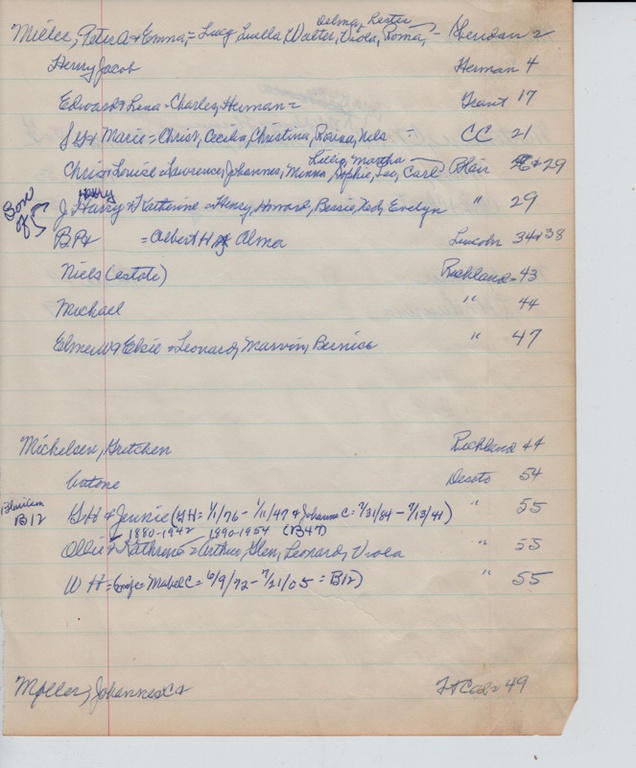 Delma, Lester
Miller, Peter A & Emma, = Lucy Luella, Walter, Viola, Roma, - Sheridan 2
Henry Jacob Herman 4
Edward & Lena = Charley, Herman = Grant 17
& Marie = Christ, Cecilia, Christina, Nels CC 21
Lillie, Martha
Chris & Louise = Lawrence, Johannes, Minna, Sophie, Leo, Carl Blair & 29
Harry
Son of J J. & Katherine = Henry, Howard, Bessie, Ted, Evelyn " 29
= Albert H & Alma Lincoln 34 & 38
Niels (estate) Richland - 43
Michael " 44
Elmer W & Elsie = Leonard, Marvin, Bernice " 47
Mickelsen, Gretchen Richland 44
Desoto 54
Blair Cem B12
G H & Jennie (G H = 1/1/76 - 1/11/47 & Johanna C = 7/31/84 - 7/13/41) " 55
1880-1942 1890-1954 (B47)
Ollie & Kathrine = Arthur, Glen, Leonard, Viola " 55
W H = Mabel C = 6/9/72 - 7/21/05 = B12) " 55
Moller, Johannes C & Ft Cal = 49